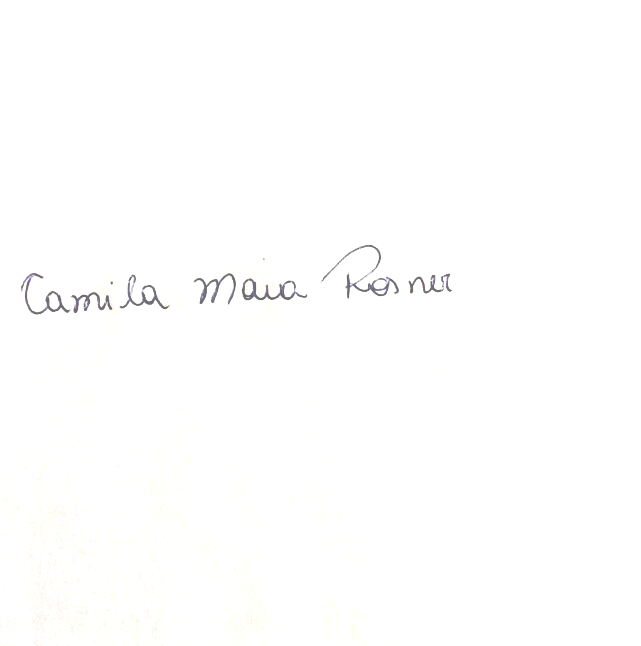 Camila Maia Rosner